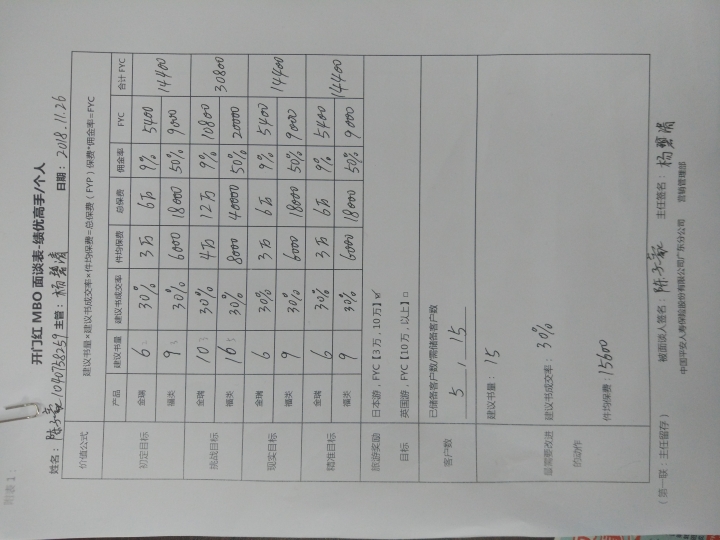 附表1:
开门红 MBO 面谈表-绩优高手/个人
姓名: 1040758259 主管: 杨碧清 日期: 2018.11.26
价值公式 建议书量×建议书成交率×件均保费=总保费(FYP)保费*佣金率=FYC
产品 建议书量 建议书成交率 件均保费 总保费 佣金率 FYC 合计 FYC
初定目标 金瑞 6 30% 3万 6万 9% 5400 14400
福类 9 30% 6000 18000 50% 9000
挑战目标 金瑞 10 30% 4万 12万 9% 10800 30800
福类 16 30% 8000 40000 50% 20000
现实目标 金瑞 6 30% 3万 6万 9% 5400 14400
福类 9 30% 6000 18000 50% 9000
精准目标 金瑞 6 30% 3万 6万 9% 5400 14400
福类 9 30% 6000 18000 50% 9000
旅游奖励 日本游,FYC【3万,10万】☑
目标 英国游,FYC【10万,以上】□
客户数 已储备客户数/需储备客户数
5 , 15
最需要改进的动作 建议书量: 15
建议书成交率: 30%
件均保费: 15600
(第一联:主任留存) 被面谈人签名: 主任签名: 杨碧清
中国平安人寿保险股份有限公司广东分公司 营销管理部